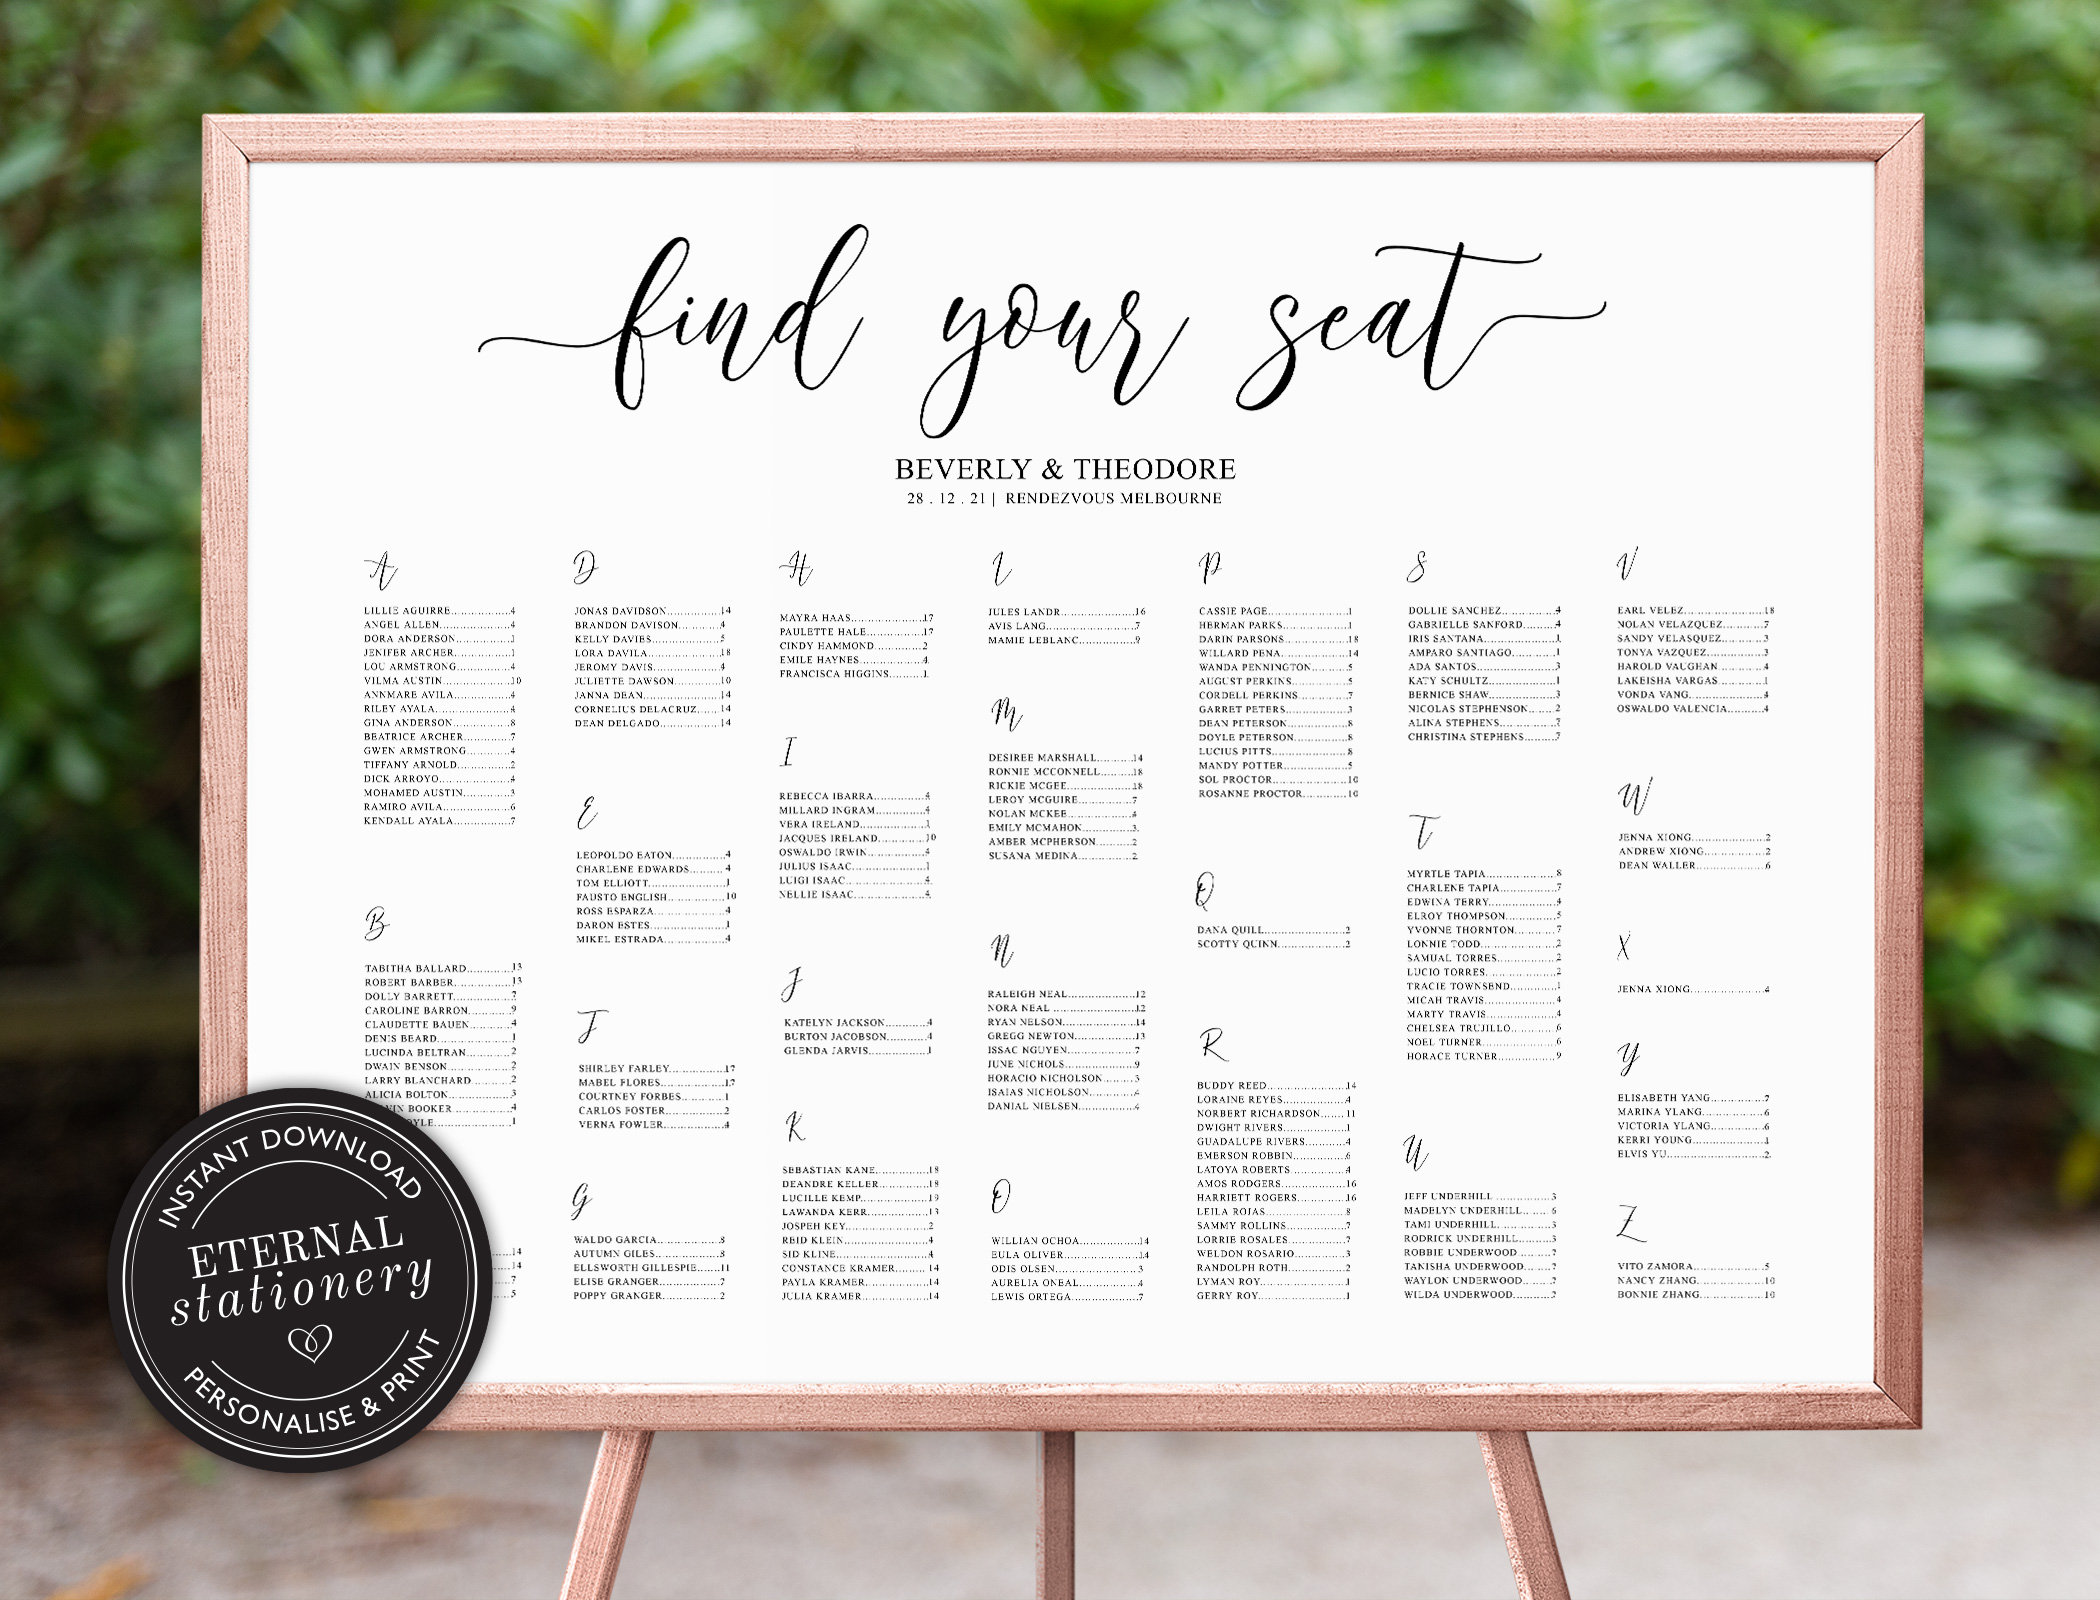 find your seat
BEVERLY & THEODORE
28 . 12 . 21 | RENDEZVOUS MELBOURNE
A
LILLIE AGUIRRE..................4
ANGEL ALLEN.....................4
DORA ANDERSON.................1
JENIFER ARCHER..................1
LOU ARMSTRONG.................4
VILMA AUSTIN.....................10
ANNMARE AVILA..................4
RILEY AYALA.......................4
GINA ANDERSON..................8
BEATRICE ARCHER...............7
GWEN ARMSTRONG..............4
TIFFANY ARNOLD.................2
DICK ARROYO......................4
MOHAMED AUSTIN...............3
RAMIRO AVILA.....................6
KENDALL AYALA..................7
B
TABITHA BALLARD..............13
ROBERT BARBER..................13
DOLLY BARRETT..................7
CAROLINE BARRON..............9
CLAUDETTE BAUEN..............4
DENIS BEARD.......................1
LUCINDA BELTRAN...............2
DWAIN BENSON....................2
LARRY BLANCHARD.............2
ALICIA BOLTON....................3
BOOKER ..................4
..................1
14
14
7
5
D
JONAS DAVIDSON.................14
BRANDON DAVISON..............4
KELLY DAVIES.....................5
LORA DAVILA......................18
JEROMY DAVIS.....................4
JULIETTE DAWSON..............10
JANNA DEAN.......................14
CORNELIUS DELACRUZ......14
DEAN DELGADO..................14
E
LEOPOLDO EATON................4
CHARLENE EDWARDS..........4
TOM ELLIOTT.......................1
FAUSTO ENGLISH.................10
ROSS ESPARZA.....................4
DARON ESTES.......................1
MIKEL ESTRADA...................4
F
SHIRLEY FARLEY.................17
MABEL FLORES....................17
COURTNEY FORBES..............1
CARLOS FOSTER...................2
VERNA FOWLER...................4
G
WALDO GARCIA...................8
AUTUMN GILES....................8
ELLSWORTH GILLESPIE.......11
ELISE GRANGER...................7
POPPY GRANGER..................2
H
MAYRA HAAS......................17
PAULETTE HALE..................17
CINDY HAMMOND................2
EMILE HAYNES.....................4
FRANCISCA HIGGINS...........1
I
REBECCA IBARRA................4
MILLARD INGRAM................4
VERA IRELAND....................1
JACQUES IRELAND...............10
OSWALDO IRWIN..................4
JULIUS ISAAC.......................1
LUIGI ISAAC.........................4
NELLIE ISAAC......................4
J
KATELYN JACKSON.............4
BURTON JACOBSON.............4
GLENDA JARVIS...................1
K
SEBASTIAN KANE................18
DEANDRE KELLER...............18
LUCILLE KEMP.....................19
LAWANDA KERR..................13
JOSPEH KEY.........................2
REID KLEIN..........................4
SID KLINE............................4
CONSTANCE KRAMER..........14
PAYLA KRAMER..................14
JULIA KRAMER...................14
L
JULES LANDR......................16
AVIS LANG..........................7
MAMIE LEBLANC................9
M
DESIREE MARSHALL...........14
RONNIE MCCONNELL..........18
RICKIE MCGEE....................18
LEROY MCGUIRE.................7
NOLAN MCKEE...................4
EMILY MCMAHON..............3
AMBER MCPHERSON..........2
SUSANA MEDINA................2
N
RALEIGH NEAL...................12
NORA NEAL .......................12
RYAN NELSON....................14
GREGG NEWTON.................13
ISSAC NGUYEN...................7
JUNE NICHOLS....................9
HORACIO NICHOLSON.........3
ISAIAS NICHOLSON.............4
DANIAL NIELSEN................4
O
WILLIAN OCHOA.................14
EULA OLIVER......................14
ODIS OLSEN........................3
AURELIA ONEAL.................4
LEWIS ORTEGA...................7
P
CASSIE PAGE.......................1
HERMAN PARKS..................1
DARIN PARSONS..................18
WILLARD PENA...................14
WANDA PENNINGTON..........5
AUGUST PERKINS................5
CORDELL PERKINS..............7
GARRET PETERS..................3
DEAN PETERSON..................8
DOYLE PETERSON................8
LUCIUS PITTS......................8
MANDY POTTER..................5
SOL PROCTOR.....................10
ROSANNE PROCTOR............10
Q
DANA QUILL.......................2
SCOTTY QUINN...................2
R
BUDDY REED......................14
LORAINE REYES..................4
NORBERT RICHARDSON......11
DWIGHT RIVERS.................1
GUADALUPE RIVERS...........4
EMERSON ROBBIN..............6
LATOYA ROBERTS..............4
AMOS RODGERS.................16
HARRIETT ROGERS............16
LEILA ROJAS......................8
SAMMY ROLLINS...............7
LORRIE ROSALES...............7
WELDON ROSARIO.............3
RANDOLPH ROTH..............2
LYMAN ROY.......................1
GERRY ROY........................1
S
DOLLIE SANCHEZ...............4
GABRIELLE SANFORD........4
IRIS SANTANA...................1
AMPARO SANTIAGO..........1
ADA SANTOS.....................3
KATY SCHULTZ.................1
BERNICE SHAW.................3
NICOLAS STEPHENSON......2
ALINA STEPHENS..............7
CHRISTINA STEPHENS.......7
T
MYRTLE TAPIA..................8
CHARLENE TAPIA..............7
EDWINA TERRY.................4
ELROY THOMPSON............5
YVONNE THORNTON..........7
LONNIE TODD....................2
SAMUAL TORRES...............2
LUCIO TORRES...................2
TRACIE TOWNSEND...........1
MICAH TRAVIS..................4
MARTY TRAVIS.................4
CHELSEA TRUJILLO...........6
NOEL TURNER...................6
HORACE TURNER...............9
U
JEFF UNDERHILL ...............3
MADELYN UNDERHILL.......6
TAMI UNDERHILL..............3
RODRICK UNDERHILL........3
ROBBIE UNDERWOOD.........?
TANISHA UNDERWOOD.......?
WAYLON UNDERWOOD.......?
WILDA UNDERWOOD..........?
V
EARL VELEZ......................18
NOLAN VELAZQUEZ..........7
SANDY VELASQUEZ..........3
TONYA VAZQUEZ..............3
HAROLD VAUGHAN ..........4
LAKEISHA VARGAS ..........1
VONDA VANG...................4
OSWALDO VALENCIA........4
W
JENNA XIONG....................2
ANDREW XIONG................2
DEAN WALLER..................6
X
JENNA XIONG....................4
Y
ELISABETH YANG..............7
MARINA YLANG................6
VICTORIA YLANG..............6
KERRI YOUNG...................1
ELVIS YU...........................2
Z
VITO ZAMORA...................5
NANCY ZHANG..................10
BONNIE ZHANG.................10
INSTANT DOWNLOAD
ETERNAL
stationery
PERSONALISE & PRINT